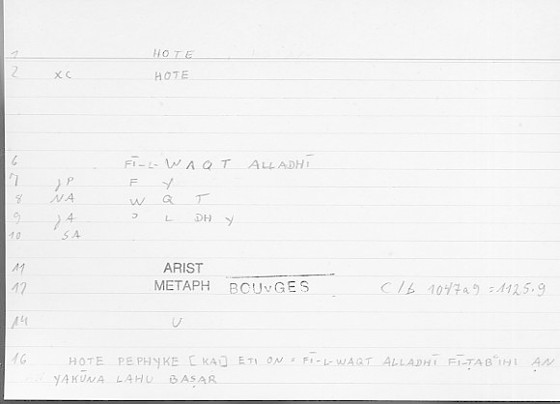 1 HOTE
2 XC HOTE
6 FĪ-L-WAQT ALLADHĪ
7 JP F Y
8 NA W Q T
9 JA ɔ L DH Y
10 SA
11 ARIST
12 METAPH BOUYGES C/b 1047a9 = 1125.9
14 U
16 HOTE PEPHYKE [KAI] ETI ON = FĪ-L-WAQT ALLADHĪ FĪ-ṬABʿIHI AN
YAKŪNA LAHU BAṢAR